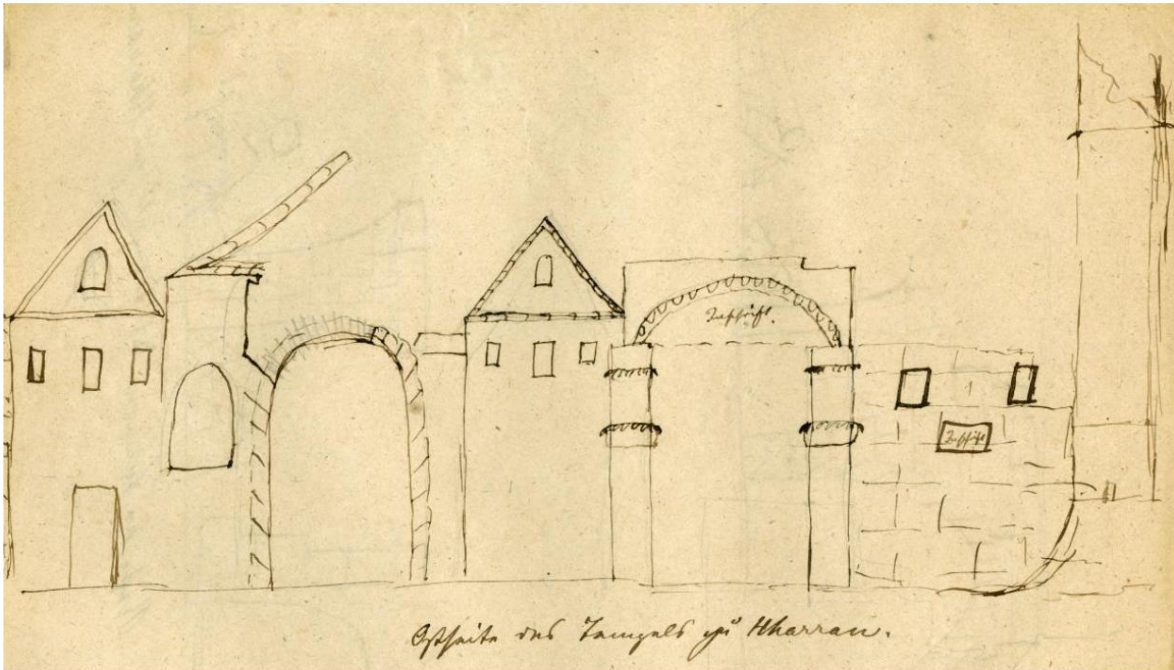 Inschrift.
Inschrift
Ostseite des Tempels zu Hharran.